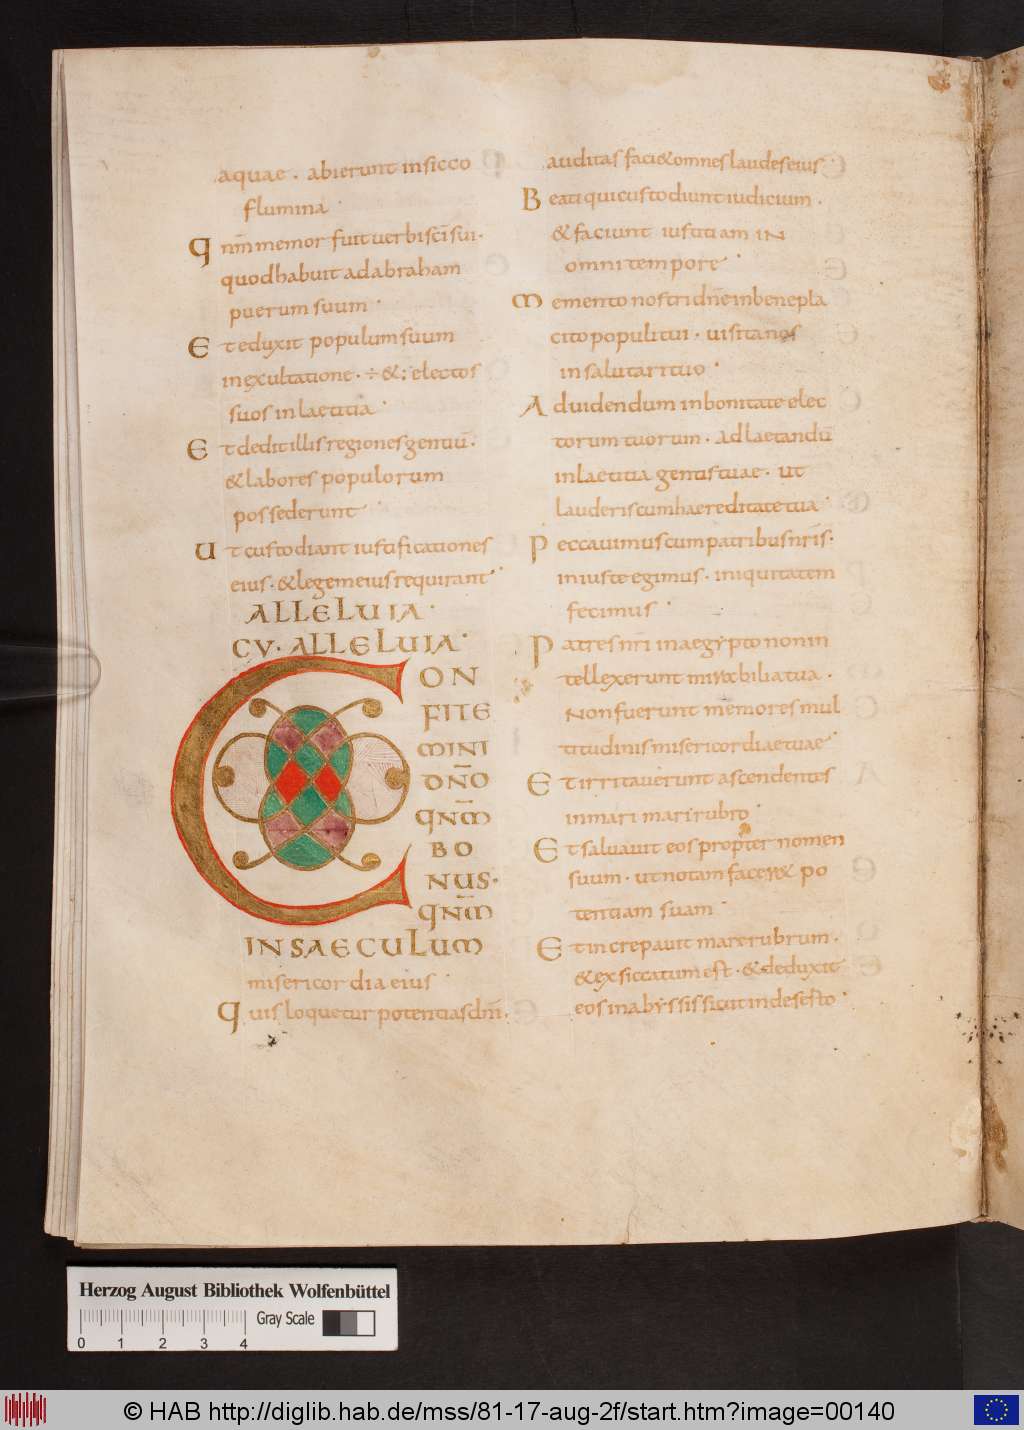 aquae . abierunt in sicco
flumina ·
Qnm̄ memor fuit verbi sc̄i sui ·
quod habuit ad abraham
puerum suum ·
Et eduxit populum suum
in exultatione · ÷ & : electos
suos in laetitia ·
Et dedit illis regiones gentiū ·
& labores populorum
possederunt ·
Ut custodiant iustificationes
eius · & legem eius requirant ·
ALLELUIA ·
CV · ALLELUIA ·
CON
FITE
MINI
DN̄O
QNM̄
BO
NUS ·
QNM̄
IN SAECULUM
misericordia eius ·
Quis loquetur potentias dn̄i ·
auditas faci& omnes laudes eius ·
Beati qui custodiunt iudicium ·
& faciunt iustitiam IN
omni tempore ·
Memento nostri dn̄e in benepla
cito populi tui · visita nos
in salutari tuo ·
Ad videndum in bonitate elec
torum tuorum · Ad laetandū
in laetitia gentis tuae · ut
lauderis cum haereditate tua ·
Peccavimus cum patribus nr̄is ·
iniuste egimus · iniquitatem
fecimus ·
Patres nr̄i in aegypto non in
tellexerunt mirabilia tua ·
Non fuerunt memores mul
titudinis misericordiae tuae ·
Et irritaverunt ascendentes
in mari mari rubro ·
Et salvavit eos propter nomen
suum · ut notam facer& po
tentiam suam ·
Et increpavit mare rubrum ·
& exsiccatum est · & deduxit
eos in abyssis sicut in deserto ·
Herzog August Bibliothek Wolfenbüttel
Gray Scale
0 1 2 3 4
© HAB http://diglib.hab.de/mss/81-17-aug-2f/start.htm?image=00140